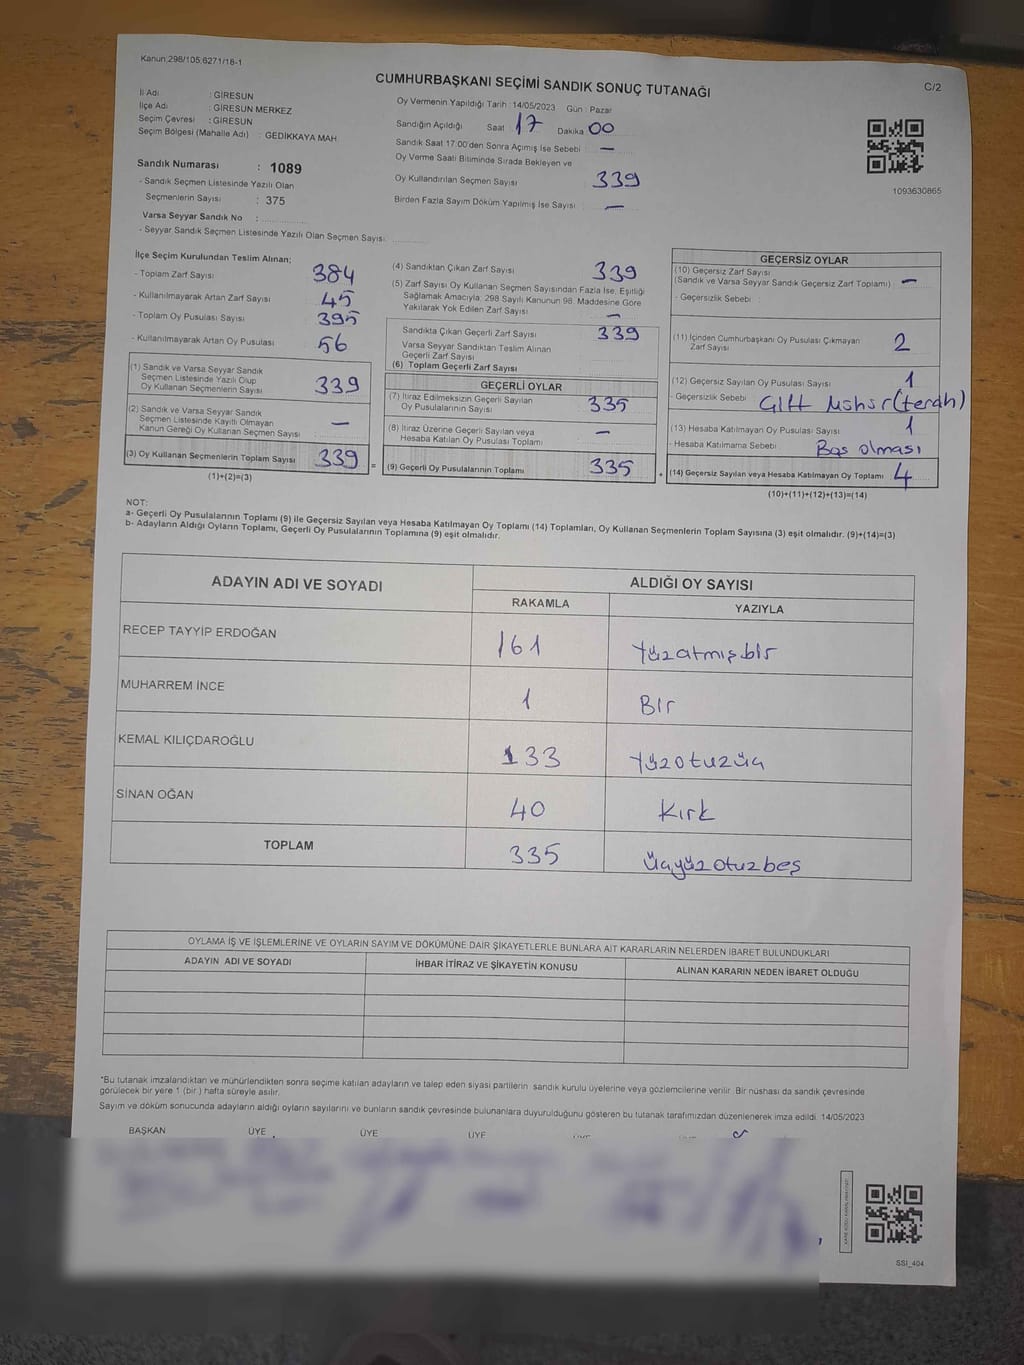 Kanun:298/105,6271/18-1
CUMHURBAŞKANI SEÇİMİ SANDIK SONUÇ TUTANAĞI
C/2
İl Adı : GİRESUN
İlçe Adı : GİRESUN MERKEZ
Seçim Çevresi : GİRESUN
Seçim Bölgesi (Mahalle Adı) : GEDİKKAYA MAH.
Sandık Numarası : 1089
- Sandık Seçmen Listesinde Yazılı Olan
Seçmenlerin Sayısı : 375
Varsa Seyyar Sandık No :
- Seyyar Sandık Seçmen Listesinde Yazılı Olan Seçmen Sayısı:
Oy Vermenin Yapıldığı Tarih : 14/05/2023 Gün : Pazar
Sandığın Açıldığı Saat 17 Dakika 00
Sandık Saat 17:00'den Sonra Açımış İse Sebebi : —
Oy Verme Saati Bitiminde Sırada Bekleyen ve
Oy Kullandırılan Seçmen Sayısı 339
Birden Fazla Sayım Döküm Yapılmış İse Sayısı : —
1093630865
İlçe Seçim Kurulundan Teslim Alınan;
- Toplam Zarf Sayısı 384
- Kullanılmayarak Artan Zarf Sayısı : 45
- Toplam Oy Pusulası Sayısı 395
- Kullanılmayarak Artan Oy Pusulası 56
(1) Sandık ve Varsa Seyyar Sandık
Seçmen Listesinde Yazılı Olup
Oy Kullanan Seçmenlerin Sayısı 339
(2) Sandık ve Varsa Seyyar Sandık
Seçmen Listesinde Kayıtlı Olmayan
Kanun Gereği Oy Kullanan Seçmen Sayısı : —
(3) Oy Kullanan Seçmenlerin Toplam Sayısı 339
(1)+(2)=(3)
=
(4) Sandıktan Çıkan Zarf Sayısı 339
(5) Zarf Sayısı Oy Kullanan Seçmen Sayısından Fazla İse, Eşitliği
Sağlamak Amacıyla; 298 Sayılı Kanunun 98. Maddesine Göre
Yakılarak Yok Edilen Zarf Sayısı —
Sandıkta Çıkan Geçerli Zarf Sayısı 339
Varsa Seyyar Sandıktan Teslim Alınan
Geçerli Zarf Sayısı
(6) Toplam Geçerli Zarf Sayısı
GEÇERLİ OYLAR
(7) İtiraz Edilmeksizin Geçerli Sayılan
Oy Pusulalarının Sayısı 335
(8) İtiraz Üzerine Geçerli Sayılan veya
Hesaba Katılan Oy Pusulası Toplamı —
(9) Geçerli Oy Pusulalarının Toplamı 335
+
GEÇERSİZ OYLAR
(10) Geçersiz Zarf Sayısı
(Sandık ve Varsa Seyyar Sandık Geçersiz Zarf Toplamı) : —
- Geçersizlik Sebebi
(11) İçinden Cumhurbaşkanı Oy Pusulası Çıkmayan
Zarf Sayısı 2
(12) Geçersiz Sayılan Oy Pusulası Sayısı 1
- Geçersizlik Sebebi Çift Mühür (
(13) Hesaba Katılmayan Oy Pusulası Sayısı 1
- Hesaba Katılmama Sebebi Boş olması
(14) Geçersiz Sayılan veya Hesaba Katılmayan Oy Toplamı 4
(10)+(11)+(12)+(13)=(14)
NOT:
a- Geçerli Oy Pusulalarının Toplamı (9) ile Geçersiz Sayılan veya Hesaba Katılmayan Oy Toplamı (14) Toplamları, Oy Kullanan Seçmenlerin Toplam Sayısına (3) eşit olmalıdır. (9)+(14)=(3)
b- Adayların Aldığı Oyların Toplamı, Geçerli Oy Pusulalarının Toplamına (9) eşit olmalıdır.
ADAYIN ADI VE SOYADI ALDIĞI OY SAYISI
RAKAMLA YAZIYLA
RECEP TAYYİP ERDOĞAN 161 Yüzatmışbir
MUHARREM İNCE 1 Bir
KEMAL KILIÇDAROĞLU 133 Yüzotuzüç
SİNAN OĞAN 40 Kırk
TOPLAM 335 Üçyüzotuzbeş
OYLAMA İŞ VE İŞLEMLERİNE VE OYLARIN SAYIM VE DÖKÜMÜNE DAİR ŞİKAYETLERLE BUNLARA AİT KARARLARIN NELERDEN İBARET BULUNDUKLARI
ADAYIN ADI VE SOYADI İHBAR İTİRAZ VE ŞİKAYETİN KONUSU ALINAN KARARIN NEDEN İBARET OLDUĞU
*Bu tutanak imzalandıktan ve mühürlendikten sonra seçime katılan adayların ve talep eden siyasi partilerin sandık kurulu üyelerine veya gözlemcilerine verilir. Bir nüshası da sandık çevresinde
görülecek bir yere 1 (bir ) hafta süreyle asılır.
Sayım ve döküm sonucunda adayların aldığı oyların sayılarını ve bunların sandık çevresinde bulunanlara duyurulduğunu gösteren bu tutanak tarafımızdan düzenlenerek imza edildi. 14/05/2023
BAŞKAN ÜYE ÜYE ÜYE
SSİ_404